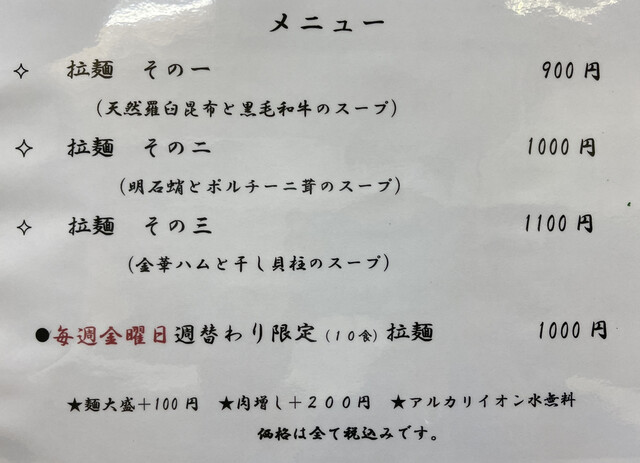 メニュー
✧ 拉麺 その一 900円
(天然羅臼昆布と黒毛和牛のスープ)
✧ 拉麺 その二 1000円
(明石蛸とポルチーニ茸のスープ)
✧ 拉麺 その三 1100円
(金華ハムと干し貝柱のスープ)
●毎週金曜日週替わり限定(10食)拉麺 1000円
★麺大盛+100円 ★肉増し+200円 ★アルカリイオン水無料
価格は全て税込みです。